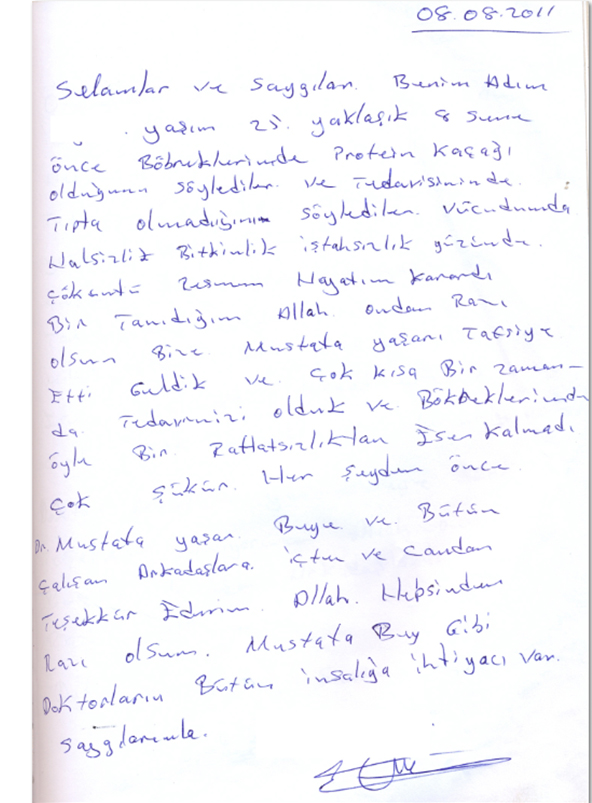 08.08.2011
Selamlar ve Saygılar. Benim Adım
yaşım 25. yaklaşık 8 sene
önce Böbreklerimde Protein Kaçağı
olduğunu söylediler. ve Tedavisininde.
Tıpta olmadığını söylediler. Vücudumda
Halsizlik Bitkinlik iştahsızlık yüzümde.
çöküntü Resmen Hayatım Karardı
Bir Tanıdığım Allah. ondan Razı
olsun Bize. Mustafa yaşarı Tafsiye
Etti Geldik ve. Çok kısa Bir zaman-
da. Tedavimizi olduk ve Böbreklerimde
öyle Bir Rahatsızlıktan Eser Kalmadı
Çok şükür. Her şeyden önce.
Dr. Mustafa yaşar. Beye ve. Bütün
Çalışan Arkadaşlara. içten ve Candan
Teşekkür Ederim. Allah. Hepsinden
Razı olsun. Mustafa Bey Gibi
Doktorların Bütün insalığa ihtiyacı var.
Saygılarımla.